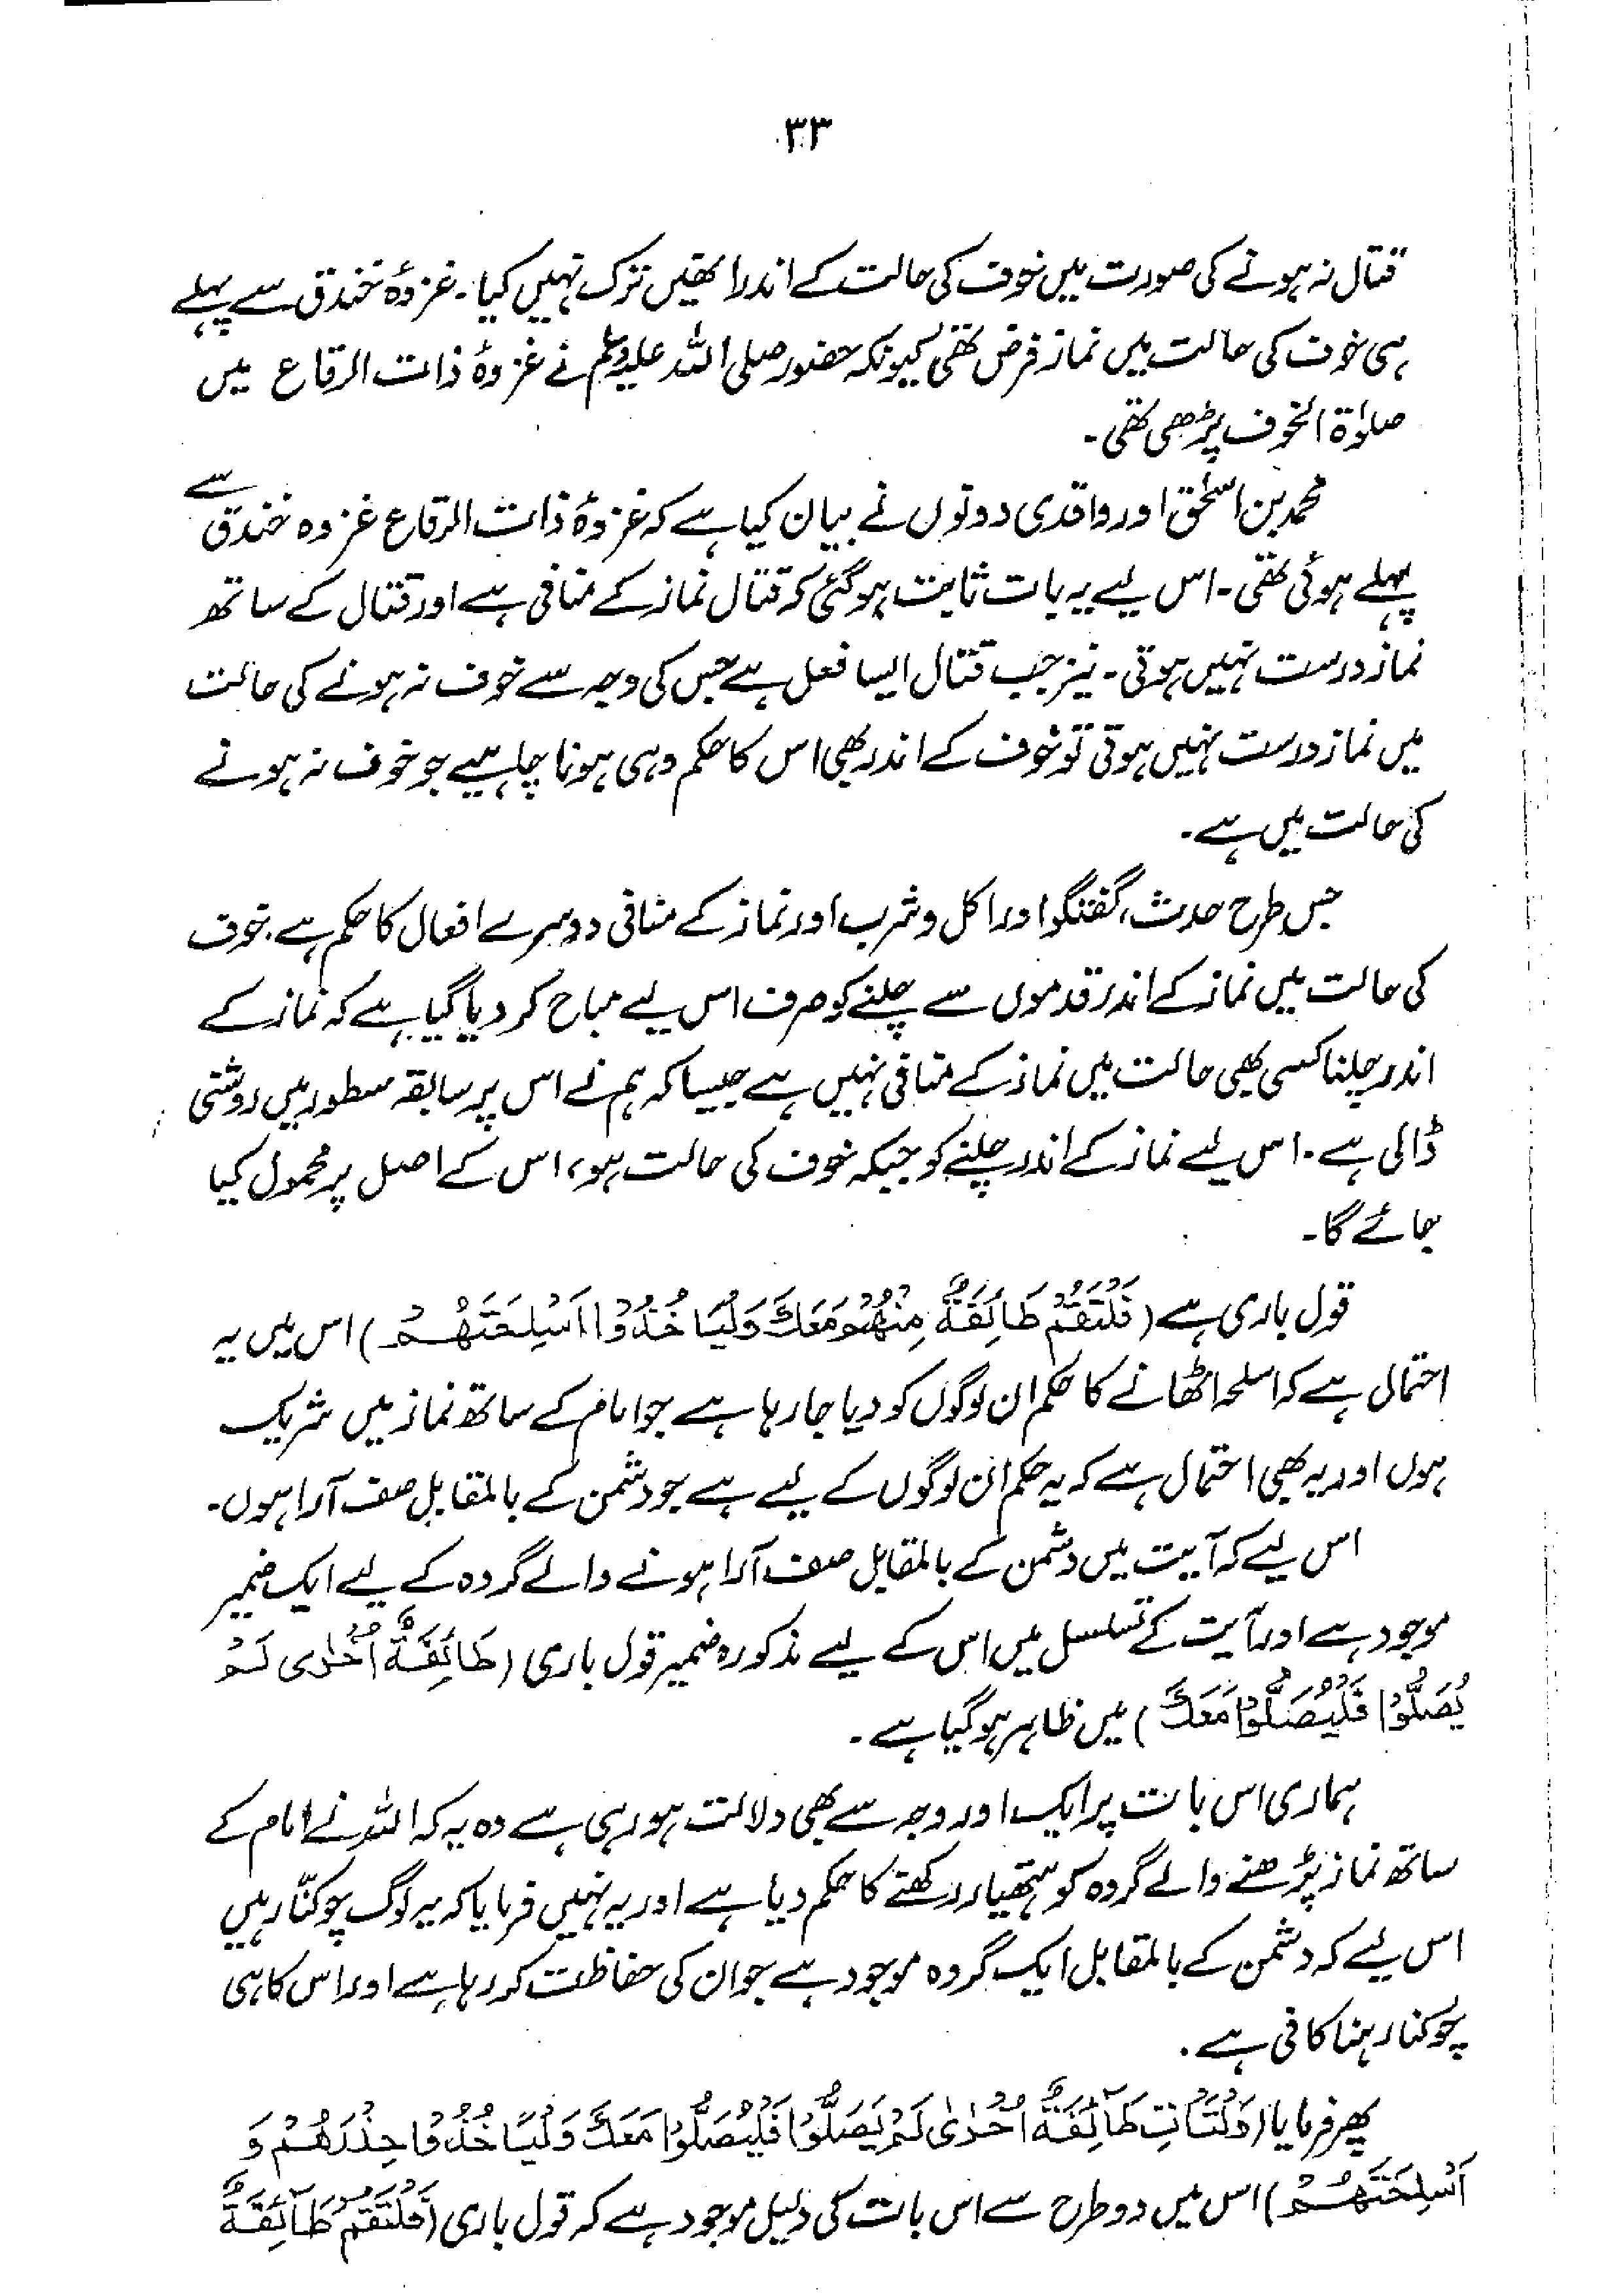 ۳۳
قتال نہ ہونے کی صورت میں خوف کی حالت کے اندر انھیں ترک نہیں کیا۔ غزوۂ خندق سے پہلے
ہی خوف کی حالت میں نماز فرض تھی کیونکہ حضور صلی اللہ علیہ وسلم نے غزوۂ ذات الرقاع میں
صلوٰۃ الخوف پڑھی تھی۔
محمد بن اسحٰق اور واقدی دونوں نے بیان کیا ہے کہ غزوۂ ذات الرقاع غزوہ خندق سے
پہلے ہوئی تھی۔ اس لیے یہ بات ثابت ہو گئی کہ قتال نماز کے منافی ہے اور قتال کے ساتھ
نماز درست نہیں ہوتی۔ نیز جب قتال ایسا فعل ہے جس کی وجہ سے خوف نہ ہونے کی حالت
میں نماز درست نہیں ہوتی تو خوف کے اندر بھی اس کا حکم وہی ہونا چاہیے جو خوف نہ ہونے
کی حالت میں ہے۔
جس طرح حدث، گفتگو اور اکل و شرب اور نماز کے منافی دوسرے افعال کا حکم ہے۔ خوف
کی حالت میں نماز کے اندر قدموں سے چلنے کو صرف اس لیے مباح کر دیا گیا ہے کہ نماز کے
اندر چلنا کسی بھی حالت میں نماز کے منافی نہیں ہے جیسا کہ ہم نے اس پر سابقہ سطور میں روشنی
ڈالی ہے۔ اس لیے نماز کے اندر چلنے کو جبکہ خوف کی حالت ہو، اس کے اصل پر محمول کیا
جائے گا۔
قول باری ہے (فَلْتَقُمْ طَائِفَةٌ مِنْهُمْ مَعَكَ وَلْيَاخُذُوْا اَسْلِحَتَهُمْ) اس میں یہ
احتمال ہے کہ اسلحہ اٹھانے کا حکم ان لوگوں کو دیا جا رہا ہے جو امام کے ساتھ نماز میں شریک
ہوں اور یہ بھی احتمال ہے کہ یہ حکم ان لوگوں کے لیے ہے جو دشمن کے بالمقابل صف آرا ہوں۔
اس لیے کہ آیت میں دشمن کے بالمقابل صف آرا ہونے والے گروہ کے لیے ایک ضمیر
موجود ہے اور آیت کے تسلسل میں اس کے لیے مذکورہ ضمیر قول باری (طَائِفَةٌ اُخْرٰى لَمْ
يُصَلُّوْا فَلْيُصَلُّوْا مَعَكَ) میں ظاہر ہو گیا ہے۔
ہماری اس بات پر ایک اور وجہ سے بھی دلالت ہو رہی ہے وہ یہ کہ اللہ نے امام کے
ساتھ نماز پڑھنے والے گروہ کو ہتھیار رکھنے کا حکم دیا ہے اور یہ نہیں فرمایا کہ یہ لوگ چوکنّا رہیں
اس لیے کہ دشمن کے بالمقابل ایک گروہ موجود ہے جو ان کی حفاظت کر رہا ہے اور اس کا ہی
چوکنا رہنا کافی ہے۔
پھر فرمایا (وَلْتَاْتِ طَآئِفَةٌ اُخْرٰى لَمْ يُصَلُّوْا فَلْيُصَلُّوْا مَعَكَ وَلْيَاخُذُوْا حِذْرَهُمْ وَ
اَسْلِحَتَهُمْ) اس میں دو طرح سے اس بات کی دلیل موجود ہے کہ قول باری (فَلْتَقُمْ طَآئِفَةٌ